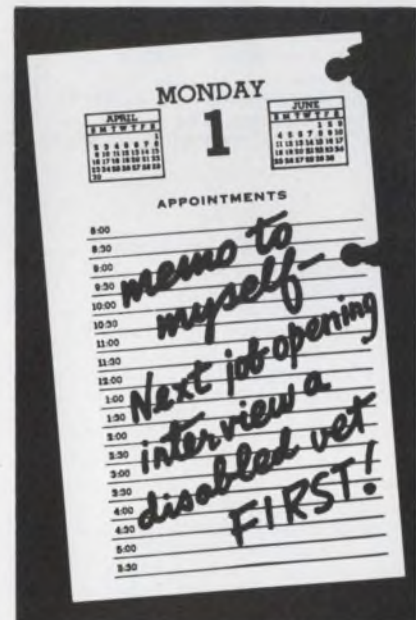 MONDAY
1
APRIL
JUNE
APPOINTMENTS
8:00
8:30
9:00
9:30
10:00
10:30
11:00
11:30
12:00
1:00
1:30
2:00
2:30
3:00
3:30
4:00
4:30
5:00
5:30
memo to
myself—
Next job opening
interview a
disabled vet
FIRST!